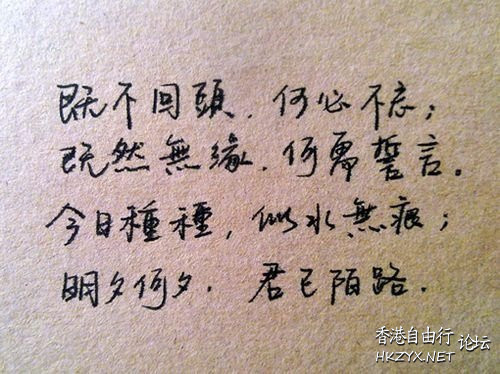 既不回頭，何必不忘；
既然無緣，何需誓言。
今日種種，似水無痕；
明夕何夕，君已陌路．
香港自由行 论坛
HKZYX.NET